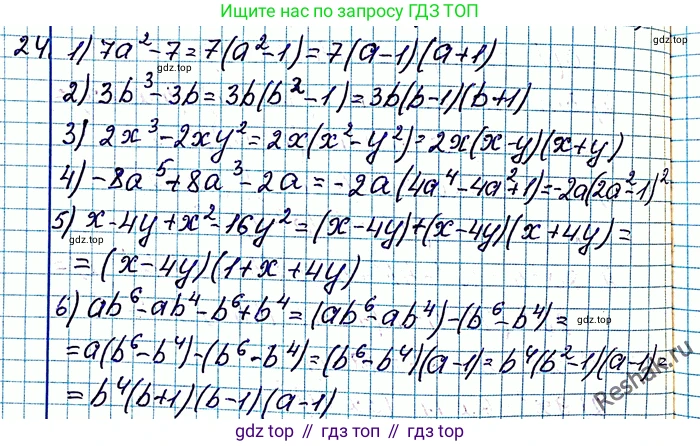 Ищите нас в поиске по запросу ГДЗ ТОП
24. 1) 7a² - 7 = 7(a² - 1) = 7(a - 1)(a + 1)
2) 3b³ - 3b = 3b(b² - 1) = 3b(b - 1)(b + 1)
3) 2x³ - 2xy² = 2x(x² - y²) = 2x(x - y)(x + y)
4) -8a⁵ + 8a³ - 2a = -2a(4a⁴ - 4a² + 1) = -2a(2a² - 1)²
5) x - 4y + x² - 16y² = (x - 4y) + (x - 4y)(x + 4y) =
= (x - 4y)(1 + x + 4y)
6) ab⁶ - ab⁴ - b⁶ + b⁴ = (ab⁶ - ab⁴) - (b⁶ - b⁴) =
= a(b⁶ - b⁴) - (b⁶ - b⁴) = (b⁶ - b⁴)(a - 1) = b⁴(b² - 1)(a - 1) =
= b⁴(b + 1)(b - 1)(a - 1)
Reshak.ru
gdz.top // гдз топ // gdz.top // гдз топ